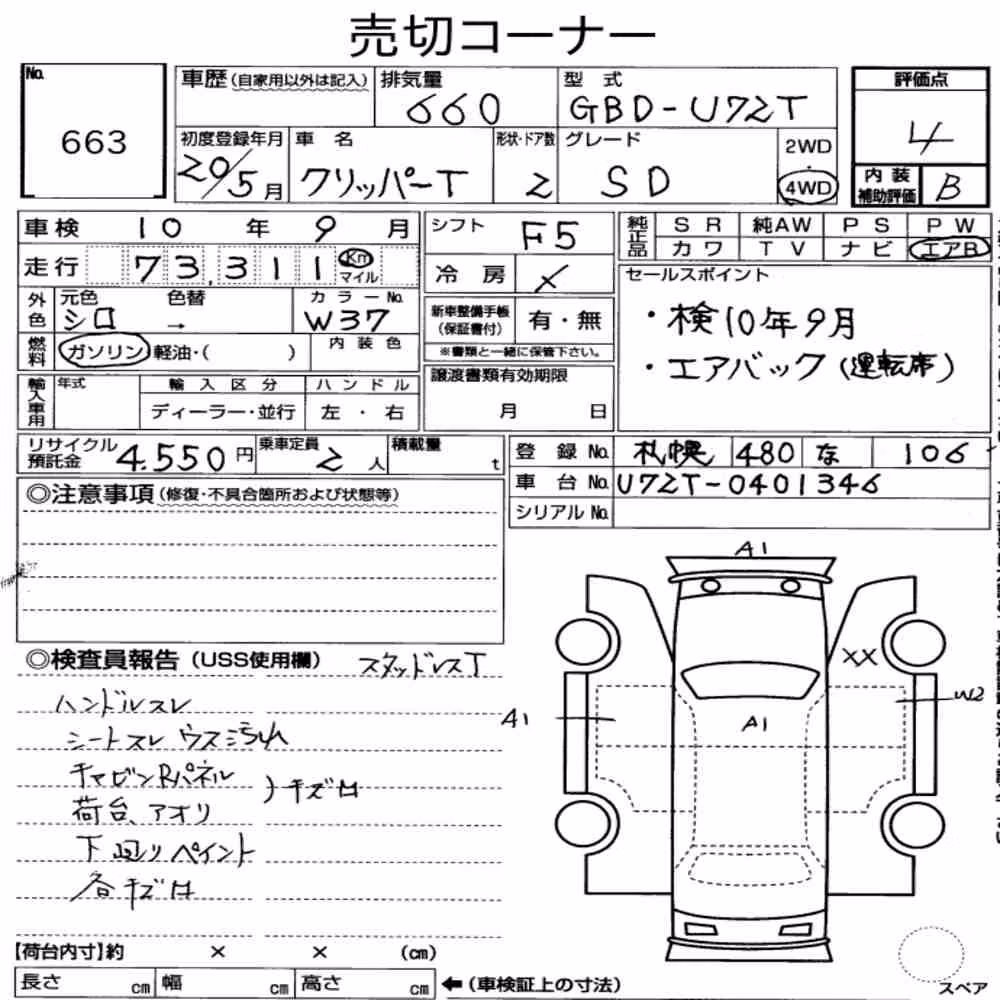 売切コーナー
No.
663
車歴(自家用以外は記入)
排気量
660
型式
GBD-U72T
評価点
4
内装補助評価
B
初度登録年月
20/5月
車名
クリッパーT
形状・ドア数
2
グレード
SD
2WD
4WD
車検 10年 9月
シフト
F5
純正品
SR 純AW PS PW
カワ TV ナビ エアB
走行 73,311 Km マイル
冷房 ×
セールスポイント
・検10年9月
・エアバック(運転席)
外色
元色
シロ
色替
→
カラーNo.
W37
新車整備手帳(保証書付)
有・無
※書類と一緒に保管下さい。
燃料
ガソリン・軽油・( )
内装色
輸入車用
年式
輸入区分
ディーラー・並行
ハンドル
左・右
譲渡書類有効期限
月 日
リサイクル預託金
4.550円
乗車定員
2人
積載量
t
登録No.
札幌 480 な 106
車台No.
U72T-0401346
シリアルNo.
◎注意事項(修復・不具合箇所および状態等)
◎検査員報告(USS使用欄)
スタッドレスT
ハンドルスレ
シートスレ ウスヨゴレ
キャビンRパネル
荷台、アオリ
)キズ凹
下回りペイント
各キズ凹
A1
A1
A1
XX
W2
【荷台内寸】約 × × (cm)
長さ cm 幅 cm 高さ cm
←(車検証上の寸法)
スペア